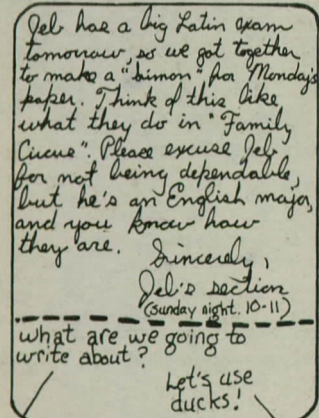 Jeb has a big Latin exam
tomorrow, so we got together
to make a "Simon" for Monday's
paper. Think of this like
what they do in "Family
Circus". Please excuse Jeb
for not being dependable,
but he's an English major,
and you know how
they are.
Sincerely,
Jeb's section
(sunday night. 10-11)
what are we going to
write about?
Let's use
ducks!